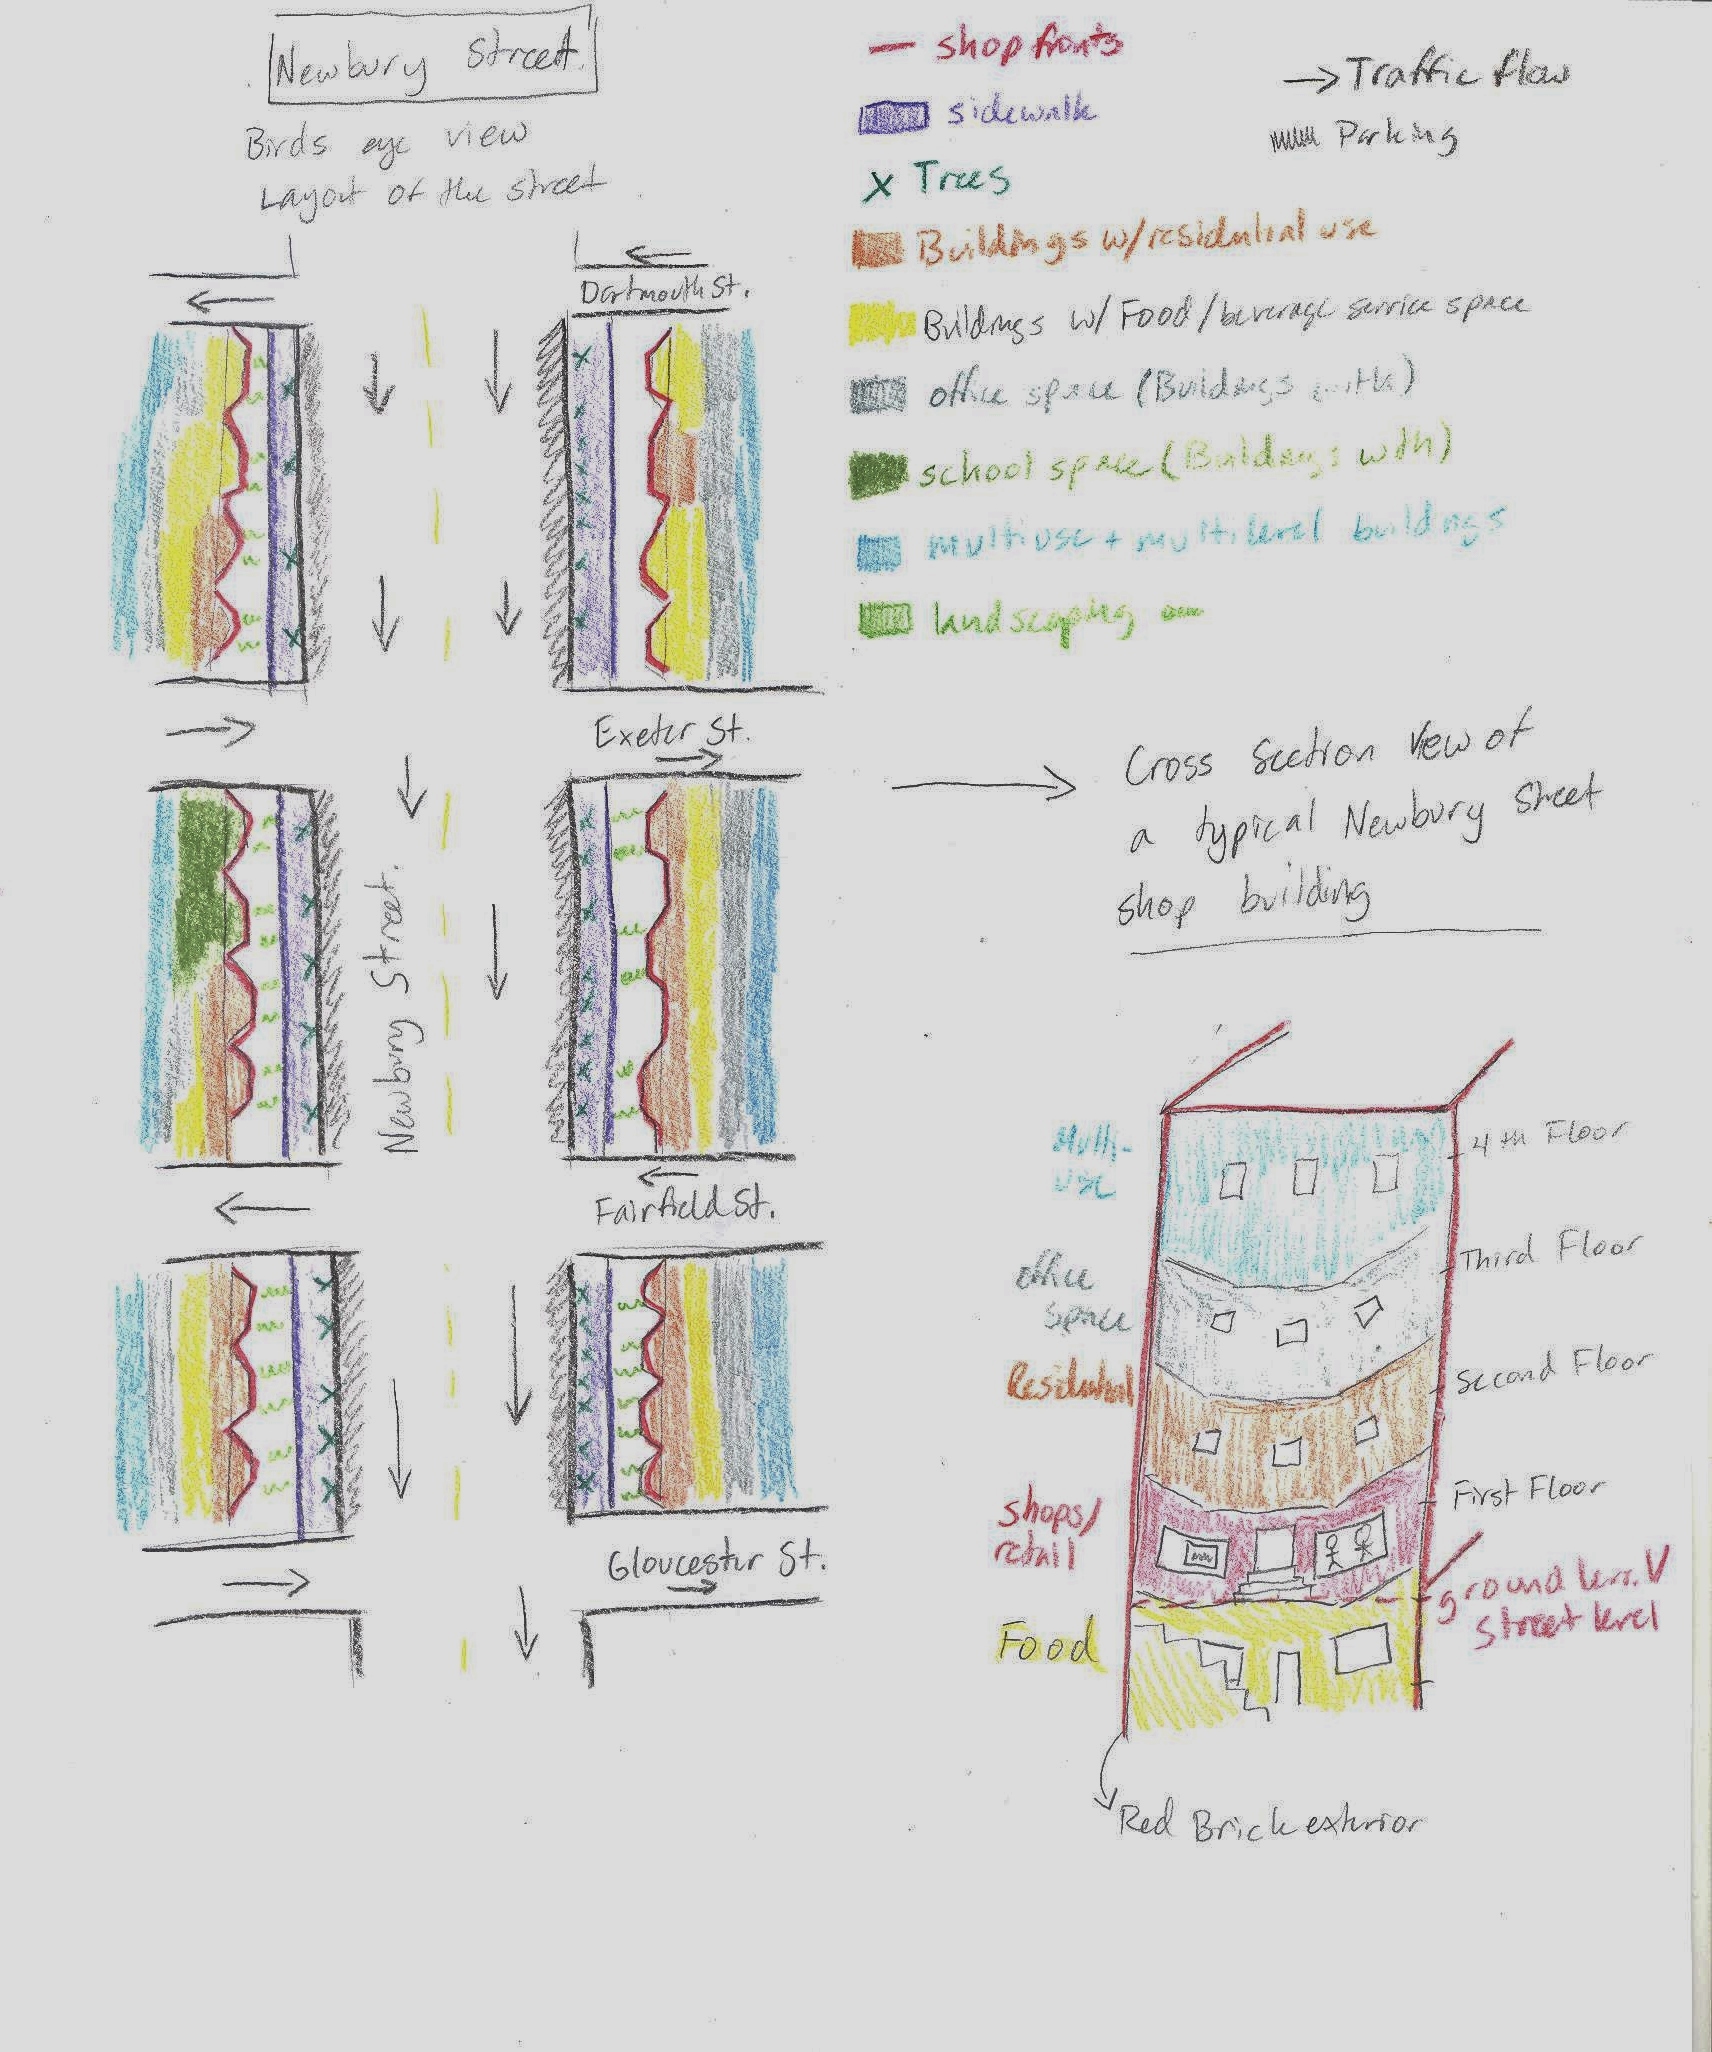 Newbury Street.
Birds eye view
Layout of the street
shop fronts
sidewalk
x Trees
Buildings w/residential use
Buildings w/ Food/beverage service space
office space (Buildings with)
school space (Buildings with)
multiuse + multilevel buildings
landscaping
Traffic flow
Parking
Dartmouth St.
Exeter St.
Newbury Street.
Fairfield St.
Gloucester St.
Cross Section View of
a typical Newbury Street
shop building
Multi-
use
office
space
Residential
shops/
retail
Food
4th Floor
Third Floor
Second Floor
First Floor
ground level
street level
Red Brick exterior